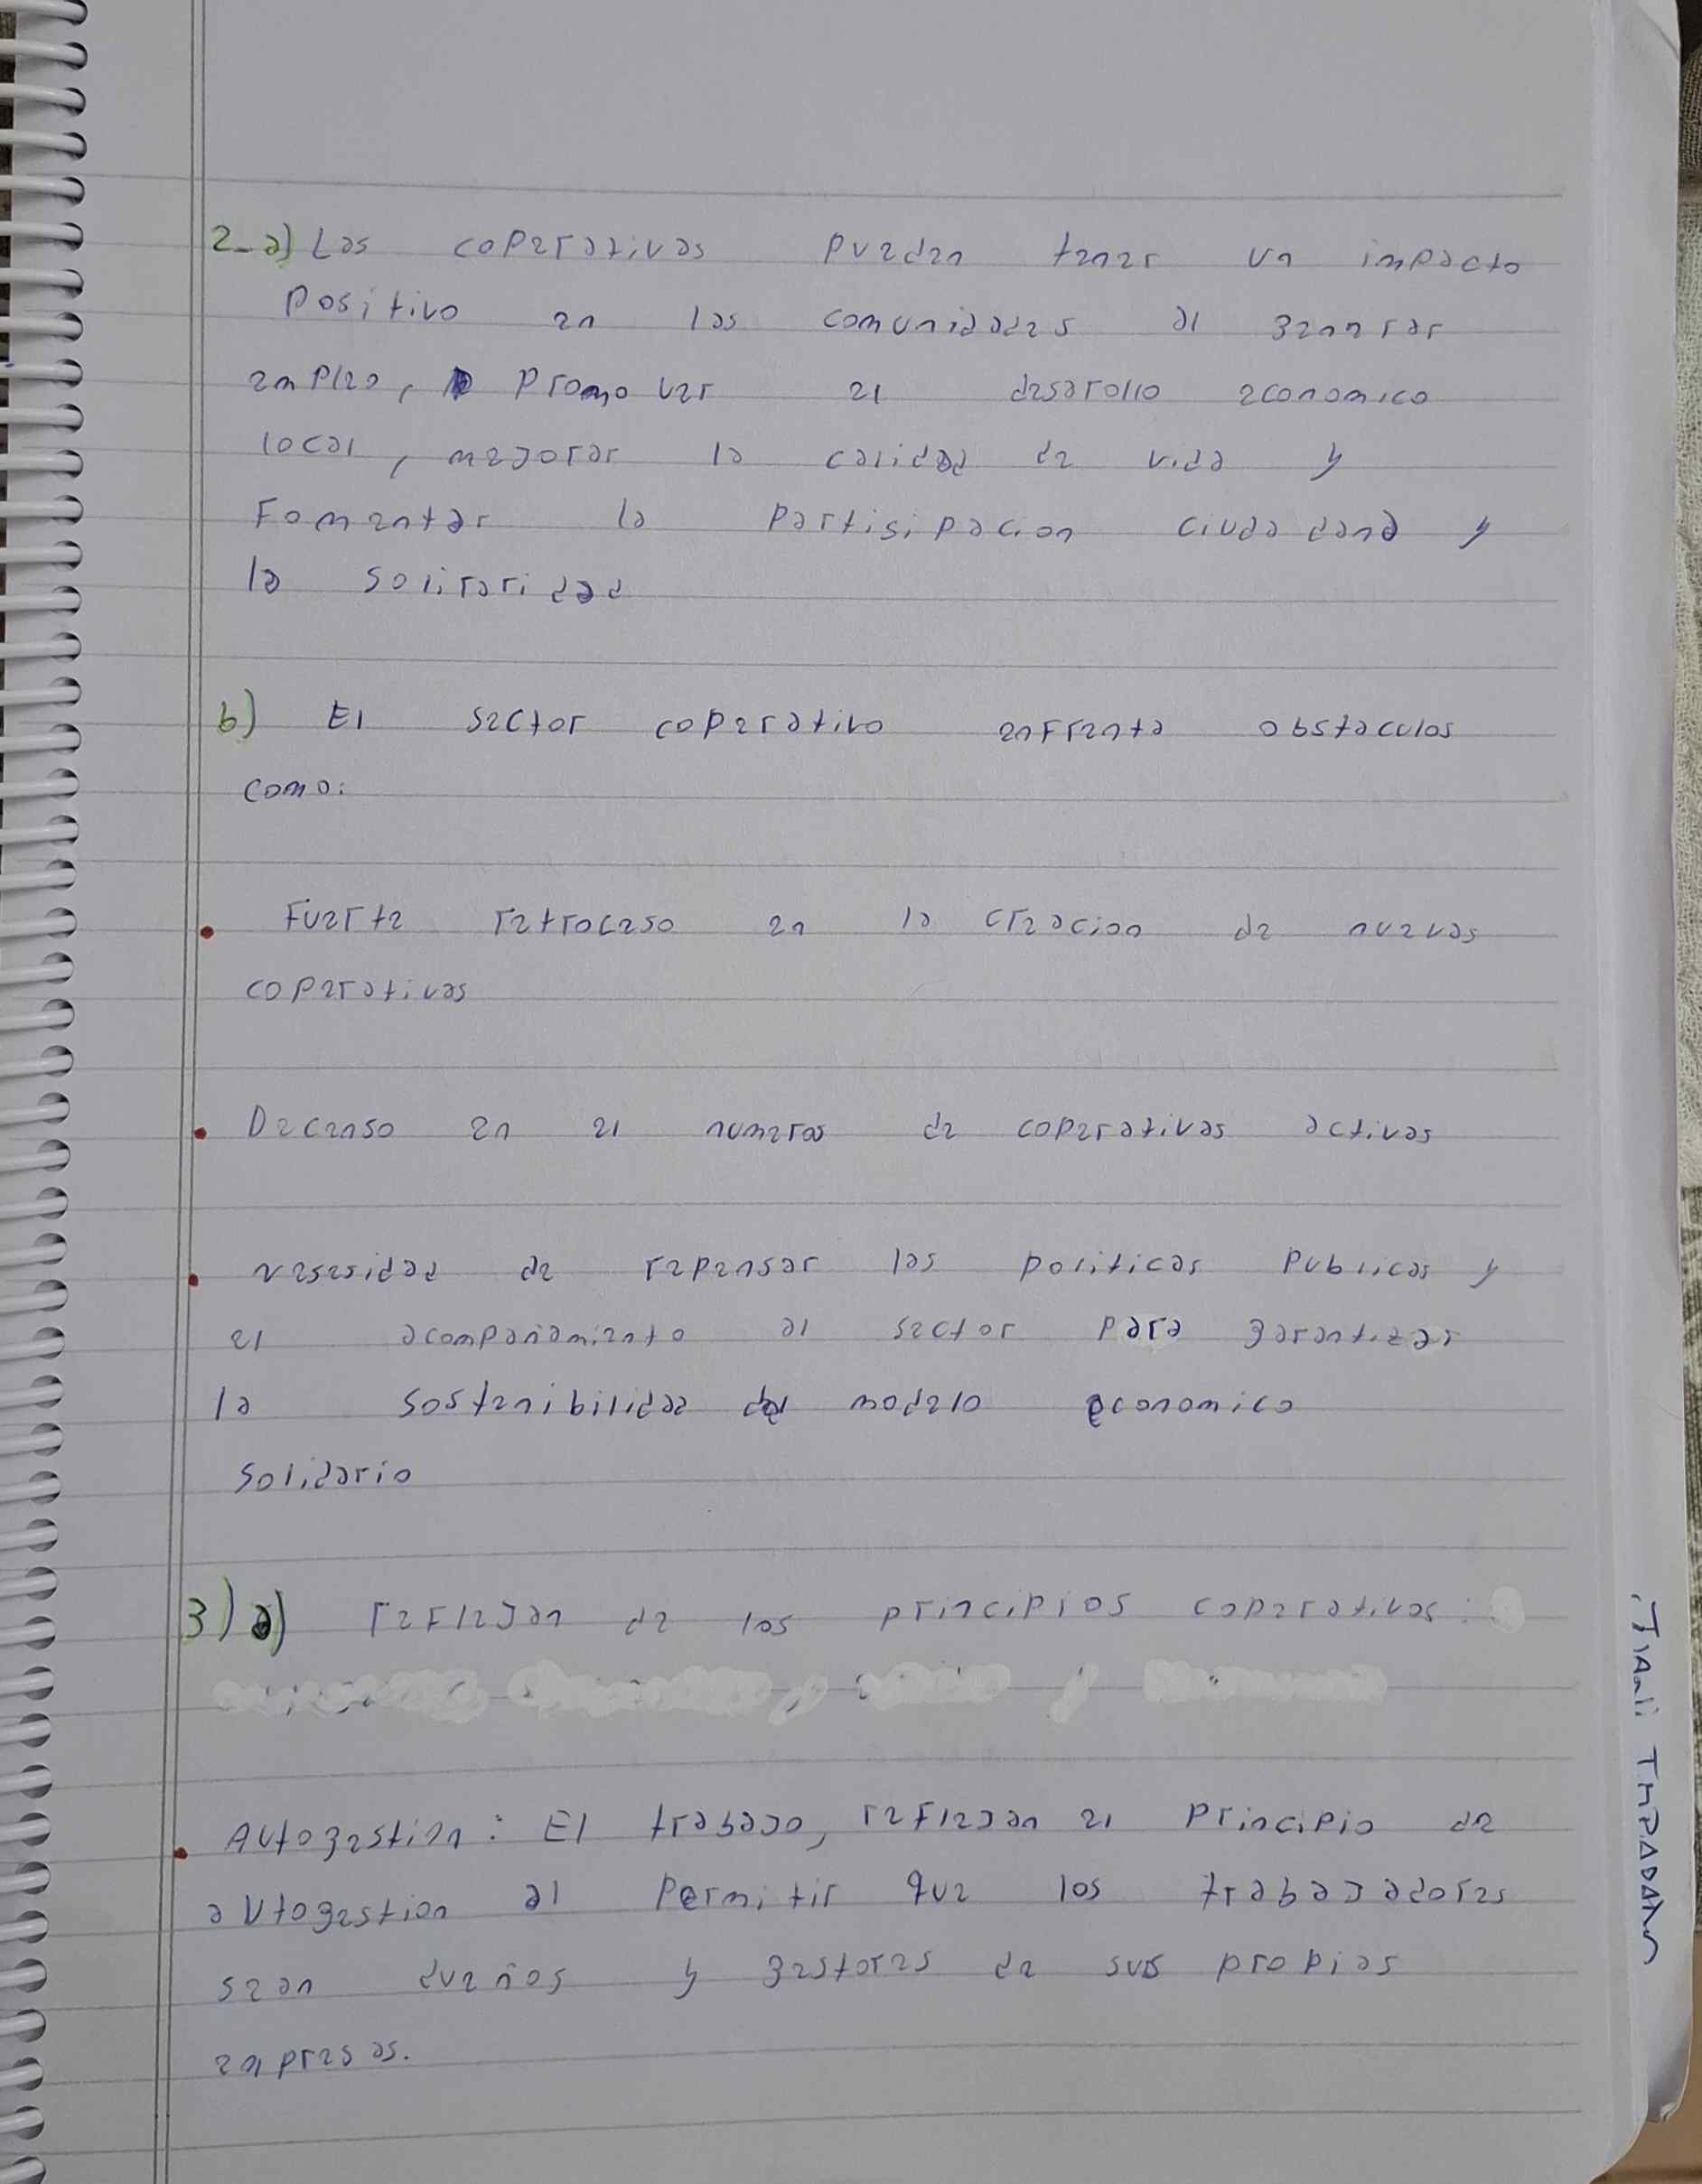 2-a) Las coperativas pueden tener un impacto
positivo en las comunidades al generar
empleo, promover el desarollo economico
local, mejorar la calidad de vida y
Fomentar la partisipacion ciudadana y
la soliraridad
b) El sector coperativo enfrenta obstaculos
como:
• Fuerte retroceso en la creacion de nuevas
coperativas
• Decenso en el numeros de coperativas activas
• nesesidad de repensar las politicas publicas y
el acompañamiento al sector para garantizar
la sostenibilidad del modelo economico
solidario
3) a) reflejan de los principios coperativos:
• Autogestion: El trabajo, reflejan el principio de
autogestion al permitir que los trabajadores
sean dueños y gestores de sus propias
empresas.